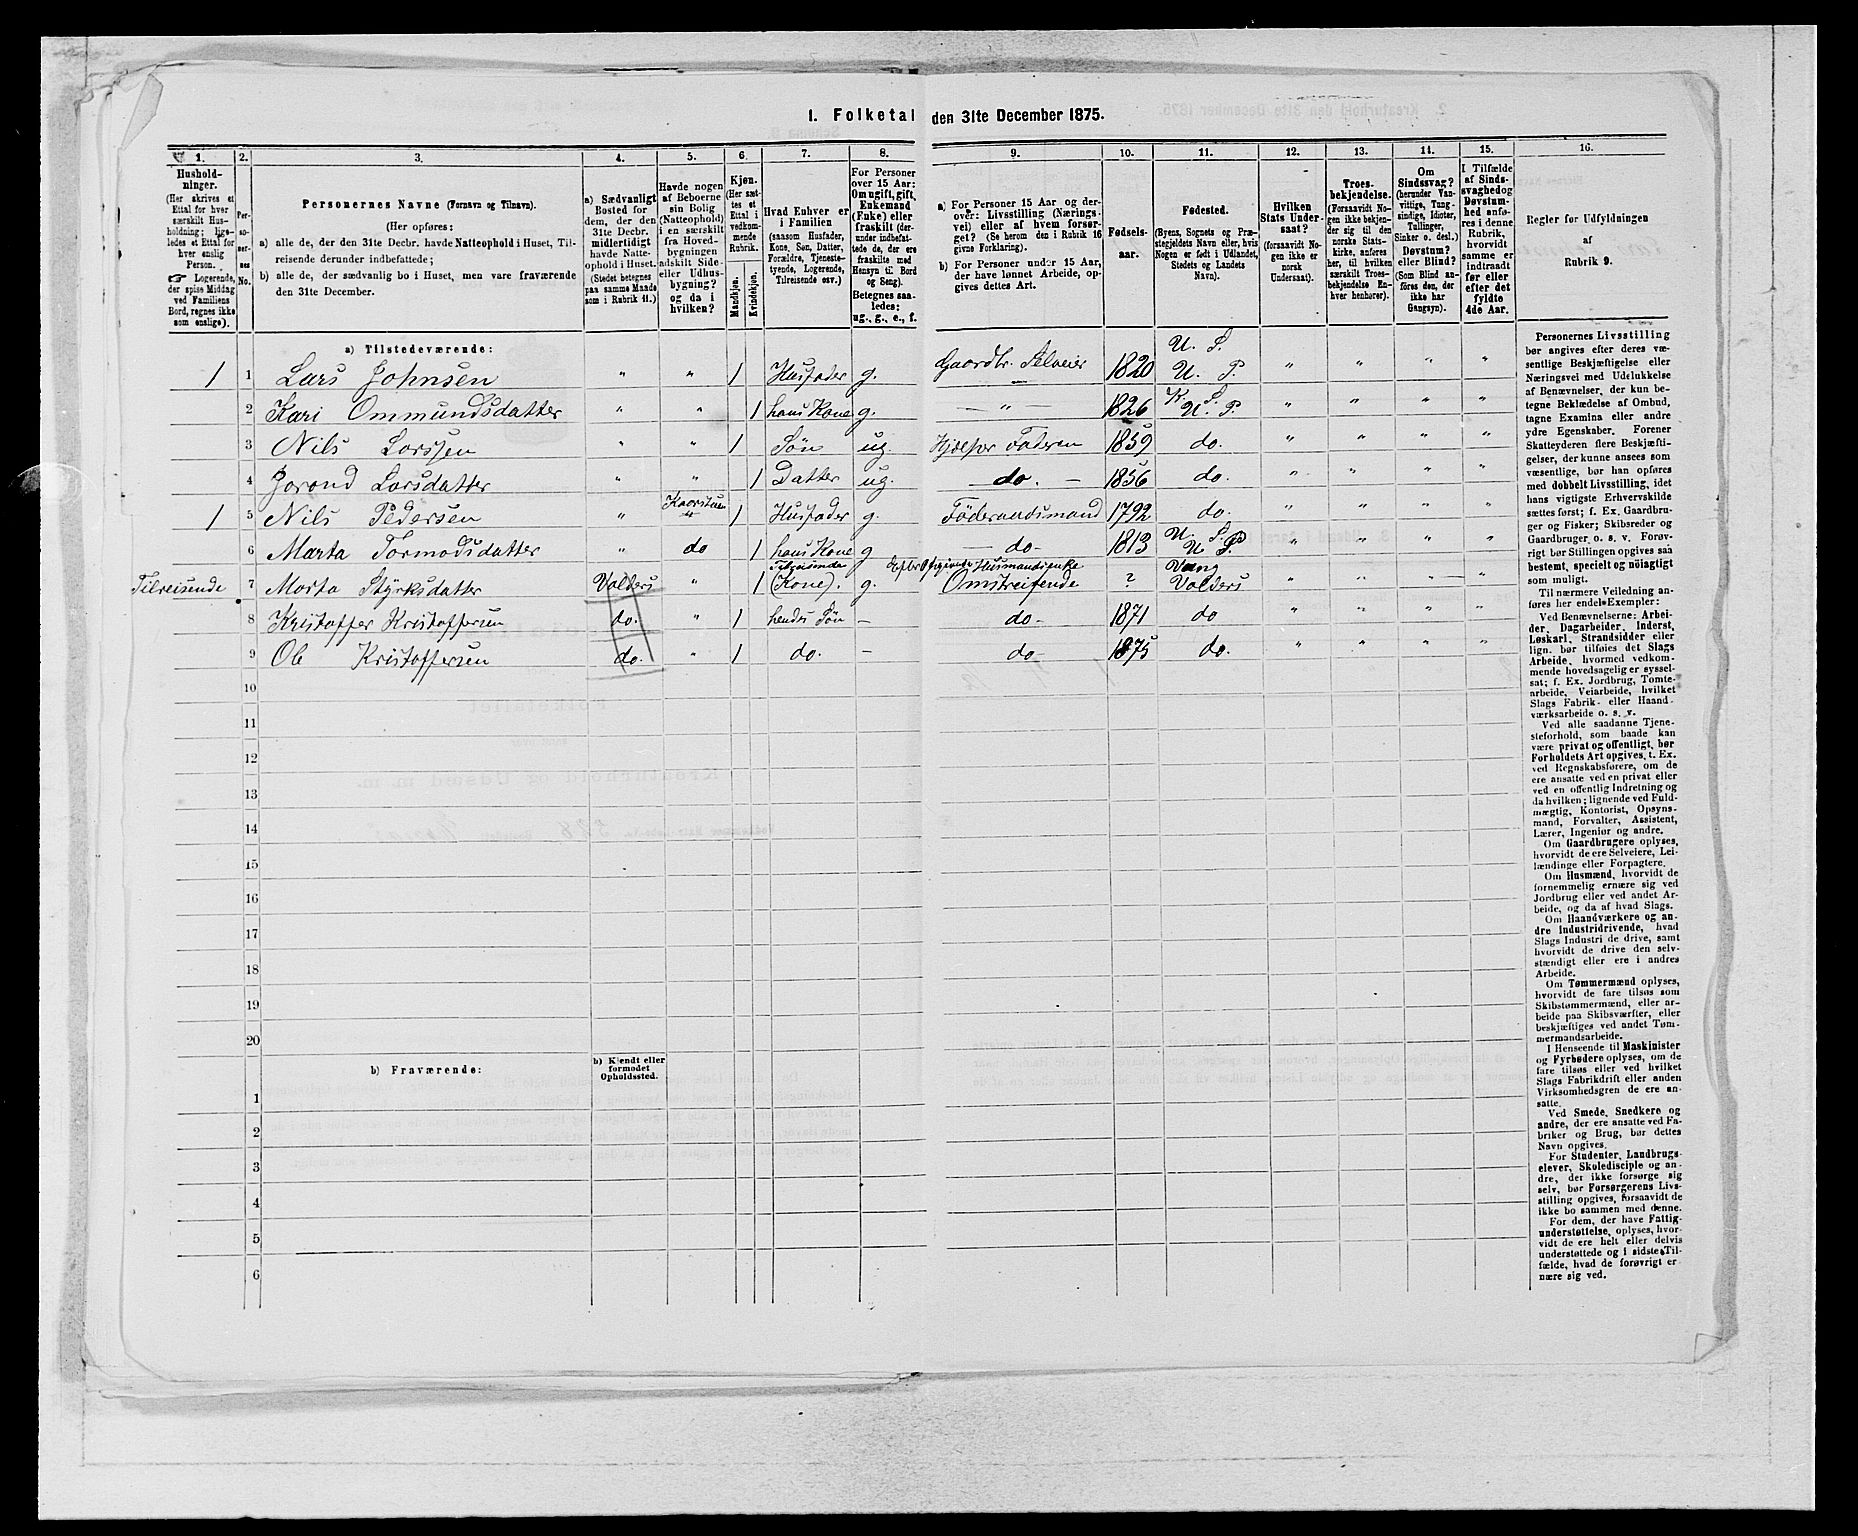 1. Folketal den 31te December 1875.
1. 2. 3. 4. 5. 6. 7. 8. 9. 10. 11. 12. 13. 14. 15. 16.
Hushold-
ninger.
(Her skrives et
Ettal for hver
særskilt Hus-
holdning; lige-
ledes et Ettal for
hver enslig
Person.
☞ Logerende,
der spise Middag
ved Familiens
Bord, regnes ikke
som enslige).
Per-
so-
ner-
nes
No.
Personernes Navne (Fornavn og Tilnavn).
(Her opføres:
a) alle de, der den 31te Decbr. havde Natteophold i Huset, Til-
reisende derunder indbefattede;
b) alle de, der sædvanlig bo i Huset, men vare fraværende
den 31te December.
a) Sædvanligt
Bosted for
dem, der den
31te Decbr.
midlertidigt
havde Natte-
ophold i Huset.
(Stedet betegnes
paa samme Maade
som i Rubrik 11.)
Havde nogen
af Beboerne
sin Bolig
(Natteophold)
i en særskilt
fra Hoved-
bygningen
adskilt Side-
eller Udhus-
bygning?
og da i
hvilken?
Kjøn.
(Her sæt-
tes et
Ettal i
vedkom-
mende
Rubrik.
Mandkjøn.
Kvindekjøn.
Hvad Enhver er
i Familien
(saasom Husfader,
Kone, Søn, Datter,
Forældre, Tjeneste-
tyende, Logerende,
Tilreisende osv.)
For Personer
over 15 Aar:
Om ugift, gift,
Enkemand
(Enke) eller
fraskilt (der-
under indbefat-
tede de, der ere
fraskilte med
Hensyn til Bord
og Seng).
Betegnes saa-
ledes:
ug., g., e., f.
a) For Personer 15 Aar og der-
over: Livsstilling (Nærings-
vei) eller af hvem forsør-
get? (Se herom den i Rubrik 16
givne Forklaring).
b) For Personer under 15 Aar,
der have lønnet Arbeide, op-
gives dettes Art.
Fødsels-
aar.
Fødested.
(Byens, Sognets og Præ-
stegjeldets Navn eller, hvis
Nogen er født i Udlandet,
Stedets og Landets
Navn).
Hvilken
Stats Under-
saat?
(forsaavidt No-
gen ikke er
norsk
Undersaat).
Troes-
bekjendelse.
(Forsaavidt No-
gen ikke bekjen-
der sig til den
norske Stats-
kirke, anføres
her, til hvilken
særskilt Troes-
bekjendelse En-
hver henhører).
Om
Sindssvag?
(herunder Van-
vittige, Tung-
sindige, Idioter,
Tullinger,
Sinker o. desl.)
Døvstum?
eller Blind?
(Som Blind an-
føres den, der
ikke har
Gangsyn).
I Tilfælde
af Sinds-
svaghed og
Døvstum-
hed anfø-
res i denne
Rubrik,
hvorvidt
samme er
indtraadt
før eller
efter det
fyldte
4de Aar.
Regler for Udfyldningen
af
Rubrik 9.
a) Tilstedeværende:
1 1 Lars Johnsen " " 1 Husfader g. Gaardbr. Selveier 1820 U. S. U. P. " " " "
2 Kari Ommundsdatter " " 1 hans Kone g. — " — 1826 K. S. U. P. " " " "
3 Nils Larssen " " 1 Søn ug. Hjælper Faderen 1859 do. " " " "
4 Jorond Larsdatter " " 1 Datter ug. — do. — 1856 do. " " " "
1 5 Nils Pedersen " Kaarstuen " 1 Husfader g. Föderaadsmand 1792 do. " " " "
6 Marta Tormodsdatter " do 1 hans Kone g — do — 1813 U. S. U. P. " " " "
Tilreisende 7 Marta Styrksdatter Valders " 1 Tilreisende (Kone). g. Husmandsenke Omstreifende ? Vang Valders " " " "
8 Kristoffer Kristoffersen do. " 1 hendes Søn — do — 1871 do " " " "
9 Ole Kristoffersen do. " 1 do. — do — 1875 do. " " " "
10
11
12
13
14
15
16
17
18
19
20
b) Fraværende:
b) Kjendt eller
formodet
Opholdssted.
1
2
3
4
5
6
Personernes Livsstilling
bør angives efter deres væ-
sentlige Beskjæftigelse eller
Næringsvei med Udelukkelse
af Benævnelser, der kun be-
tegne Beklædelse af Ombud,
tagne Examina eller andre
ydre Egenskaber. Forener
Skatteyderen flere Beskjæfti-
gelser, der kunne ansees som
væsentlige, bør han opføres
med dobbelt Livsstilling, idet
hans vigtigste Erhvervskilde
sættes først; f. Ex. Gaardbru-
ger og Fisker; Skibsreder og
Gaardbruger o. s. v. Forøv-
rigt bør Stillingen opgives saa
bestemt, specielt og nøiagtigt
som muligt.
Til nærmere Veiledning an-
føres her endel Exempler:
Ved Benævnelserne: Arbei-
der, Dagarbeider, Inderst,
Løskarl, Strandsidder eller
lign. bør tilføies det Slags
Arbeide, hvormed vedkom-
mende hovedsagelig er syssel-
sat; f. Ex. Jordbrug, Tomte-
arbeide, Veiarbeide, hvilket
Slags Fabrik- eller Haand-
værksarbeide o. s. v.
Ved alle saadanne Tjene-
steforhold, som baade kan
være privat og offentligt, bør
Forholdets Art opgives, t. Ex.
ved Regnskabsførere, om de
ere ansatte ved en privat eller
ved en offentlig Indretning og
da hvilken; lignende ved Fuld-
mægtig, Kontorist, Opsyns-
mand, Forvalter, Assistent,
Lærer, Ingeniør og andre.
Om Gaardbrugere oplyses,
hvorvidt de ere Selveiere, Lei-
lændinge eller Forpagtere.
Om Husmænd, hvorvidt de
fornemmelig ernære sig ved
Jordbrug eller ved andet Ar-
beide, og da af hvad Slags.
Om Haandværkere og an-
dre Industridrivende, hvad
Slags Industri de drive, samt
hvorvidt de drive den selv-
stændigt eller ere i andres
Arbeide.
Om Tømmermænd oplyses,
hvorvidt de fare tilsøs som
Skibstømmermænd, eller ar-
beide paa Skibsværfter, eller
beskjæftiges ved andet Tøm-
mermandsarbeide.
I Henseende til Maskinister
og Fyrbødere oplyses, om de
fare tilsøs eller ved hvilket
Slags Fabrikdrift eller anden
Virksomhedsgren de ere an-
satte.
Ved Smede, Snedkere og
andre, der ere ansatte ved Fa-
briker og Brug, bør dettes
Navn opgives.
For Studenter, Landbrugs-
elever, Skoledisciple og an-
dre, der ikke forsørge sig
selv, bør Forsørgerens Livs-
stilling opgives, forsaavidt de
ikke bo sammen med denne.
For dem, der have Fattig-
understøttelse, oplyses, hvor-
vidt de ere helt eller delvis
understøttede og i sidste Til-
fælde, hvad de forøvrigt er-
nære sig ved.